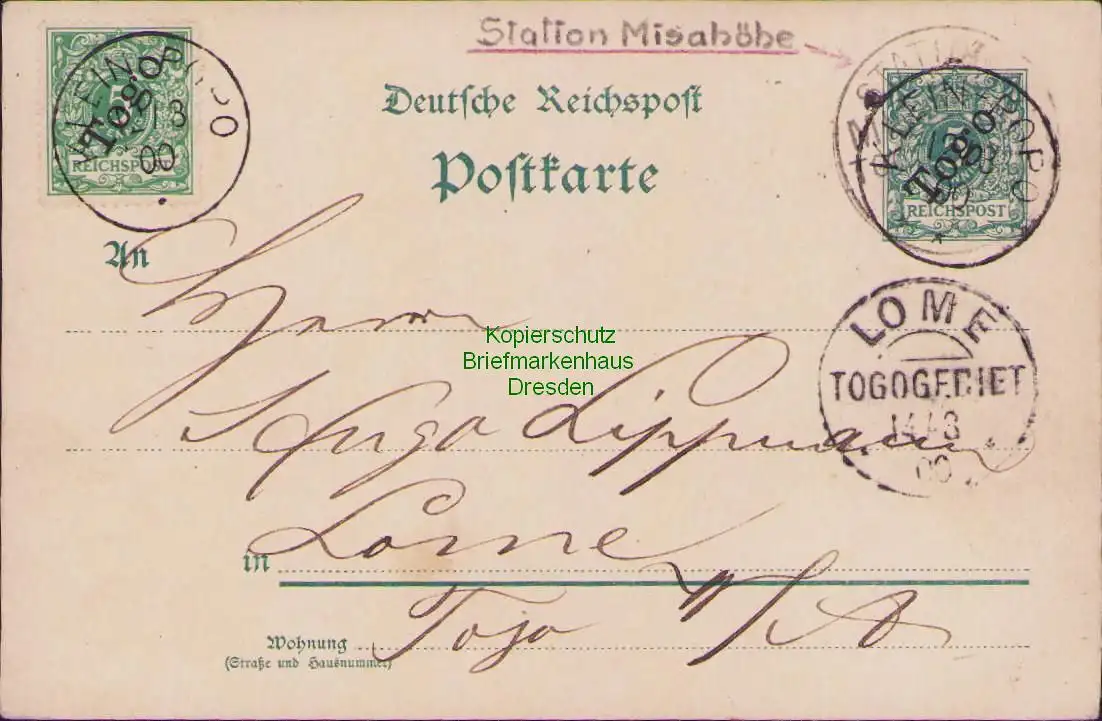 Station Misahöhe
KLEIN POPO
Togo
00
REICHSPOST
Deutsche Reichspost
Postkarte
STATION
KLEIN-POPO
5
Togo
REICHSPOST
An
Herrn
Hugo Lippmann
LOME
TOGOGEBIET
14/3
00
Kopierschutz
Briefmarkenhaus
Dresden
in Lome
Togo W/A
Wohnung
(Straße und Hausnummer)